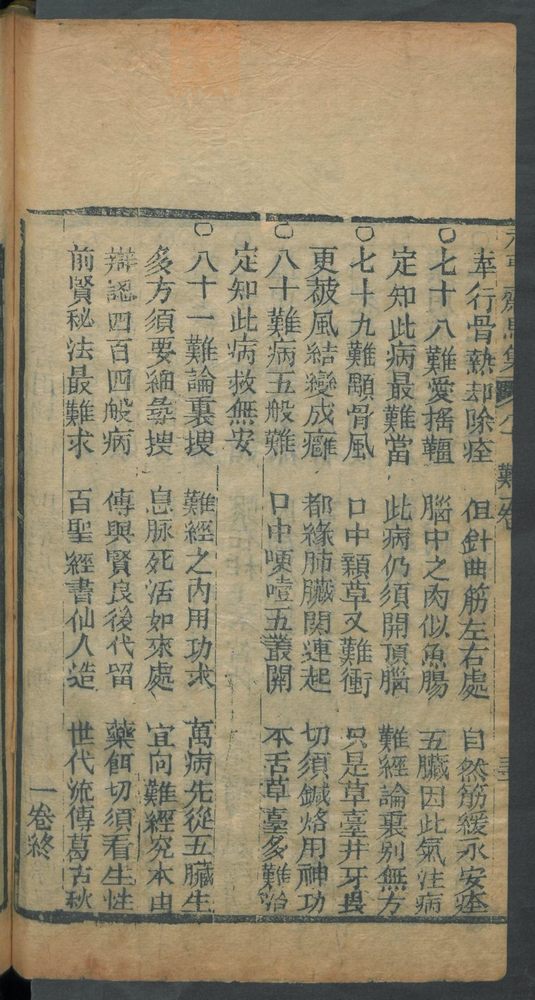 牽行骨熱却除痊 但針曲筋左右處 自然筋緩永安痊
○七十八難愛搖韁 腦中之肉似魚腸 五臟因此氣注病
定知此病最難當 此病仍須開頂腦 難經論裏別無方
○七十九難顋骨風 口中顙草又難衝 只是草臺井牙
更被風結變成癰 都緣肺臟関連起 切須鍼烙用神功
○八十難病五般難 口中哽噎五叢開 不舌草臺多難治
定知此病救無安
○八十一難論裏搜 難經之內用功求 萬病先從五臟生
多方須要細尋搜 息脉死活如來處 宜向難經究本由
辯認四百四般病 傳與賢良後代留 藥餌切須看生性
前賢秘法最難求 百聖經書仙人造 世代流傳萬古秋
一卷終